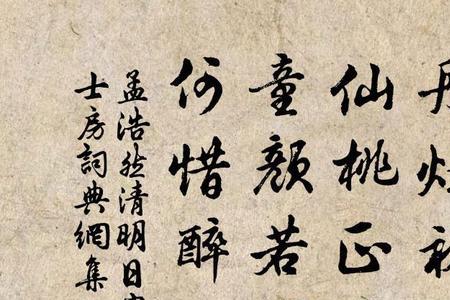 仙桃正
童顏若
何惜醉
孟浩然清明日
士房詞典網集